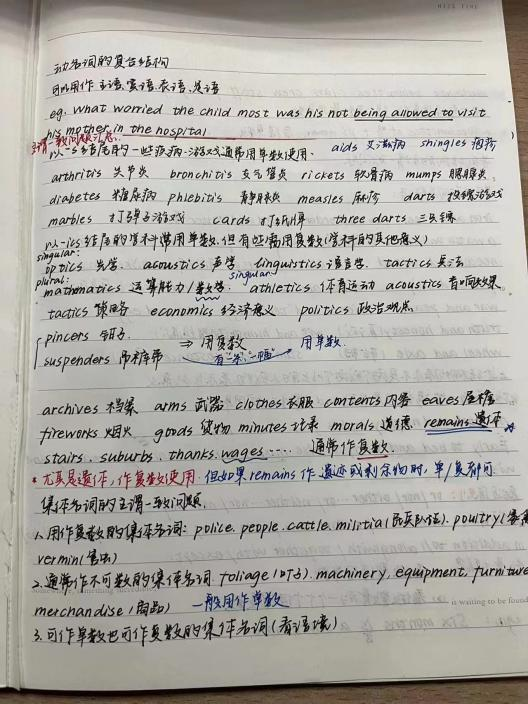 动名词的复合结构
可以用作主语,宾语,表语,状语
eg. What worried the child most was his not being allowed to visit
his mother in the hospital
主谓一致问题汇总:
以-s结尾的一些疾病、游戏通常用单数使用. aids 艾滋病 shingles 疱疹
arthritis 关节炎 bronchitis 支气管炎 rickets 软骨病 mumps 腮腺炎
diabetes 糖尿病 phlebitis 静脉炎 measles 麻疹 darts 投镖游戏
marbles 打弹子游戏 cards 打纸牌 three darts 三支镖
以-ics结尾的学科常用单数,但有些需用复数(学科的其他意义)
singular:
optics 光学. acoustics 声学 linguistics 语言学. tactics 兵法
plural: singular
mathematics 运算能力/数学. athletics 体育运动 acoustics 音响效果
tactics 策略 economics 经济意义 politics 政治观点
pincers 钳子
suspenders 吊裤带 ⇒ 用复数 有"条","一幅" 用单数.
archives 档案 arms 武器 clothes 衣服 contents 内容 eaves 屋檐
fireworks 烟火 goods 货物 minutes 记录 morals 道德 remains 遗体
stairs. suburbs. thanks. wages ..... 通常作复数.
* 尤其是遗体,作复数使用.但如果remains作遗迹或剩余物时,单/复都可
集体名词的主谓一致问题.
1.用作复数的集体名词: police. people. cattle. militia(民兵队伍). poultry(家禽)
vermin(害虫)
2.通常作不可数的集体名词. foliage(叶子). machinery, equipment. furniture
merchandise(商品) 一般用作单数
is waiting to be found
3.可作单数也可作复数的集体名词(看语境)